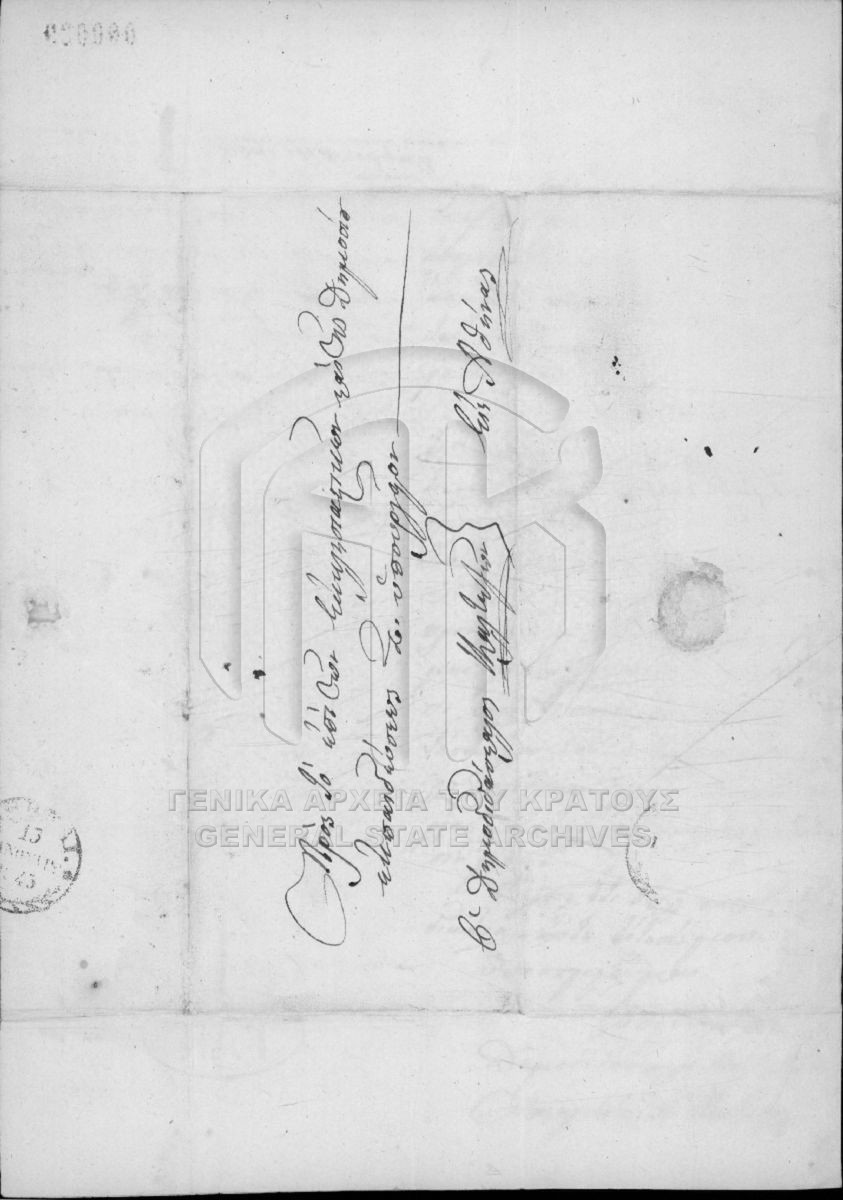 Πρὸς τὸ ἐπὶ τῶν Ἐκκλησιαστικῶν καὶ τῆς Δημοσίου
ἐκπαιδεύσεως Β. ὑπουργεῖον
Ὁ Δημοδιδάσκαλος
Εἰς Ἀθήνας
ΓΕΝΙΚΑ ΑΡΧΕΙΑ ΤΟΥ ΚΡΑΤΟΥΣ
GENERAL STATE ARCHIVES